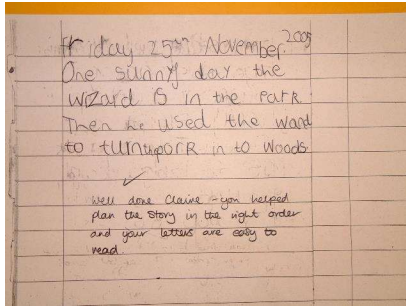 Friday 25th November 2005
One sunny day the
wizard is in the Park
Then he used the wand
to turn the porR in to woods
✓
Well done Claire - you helped
plan the story in the right order
and your letters are easy to
read.